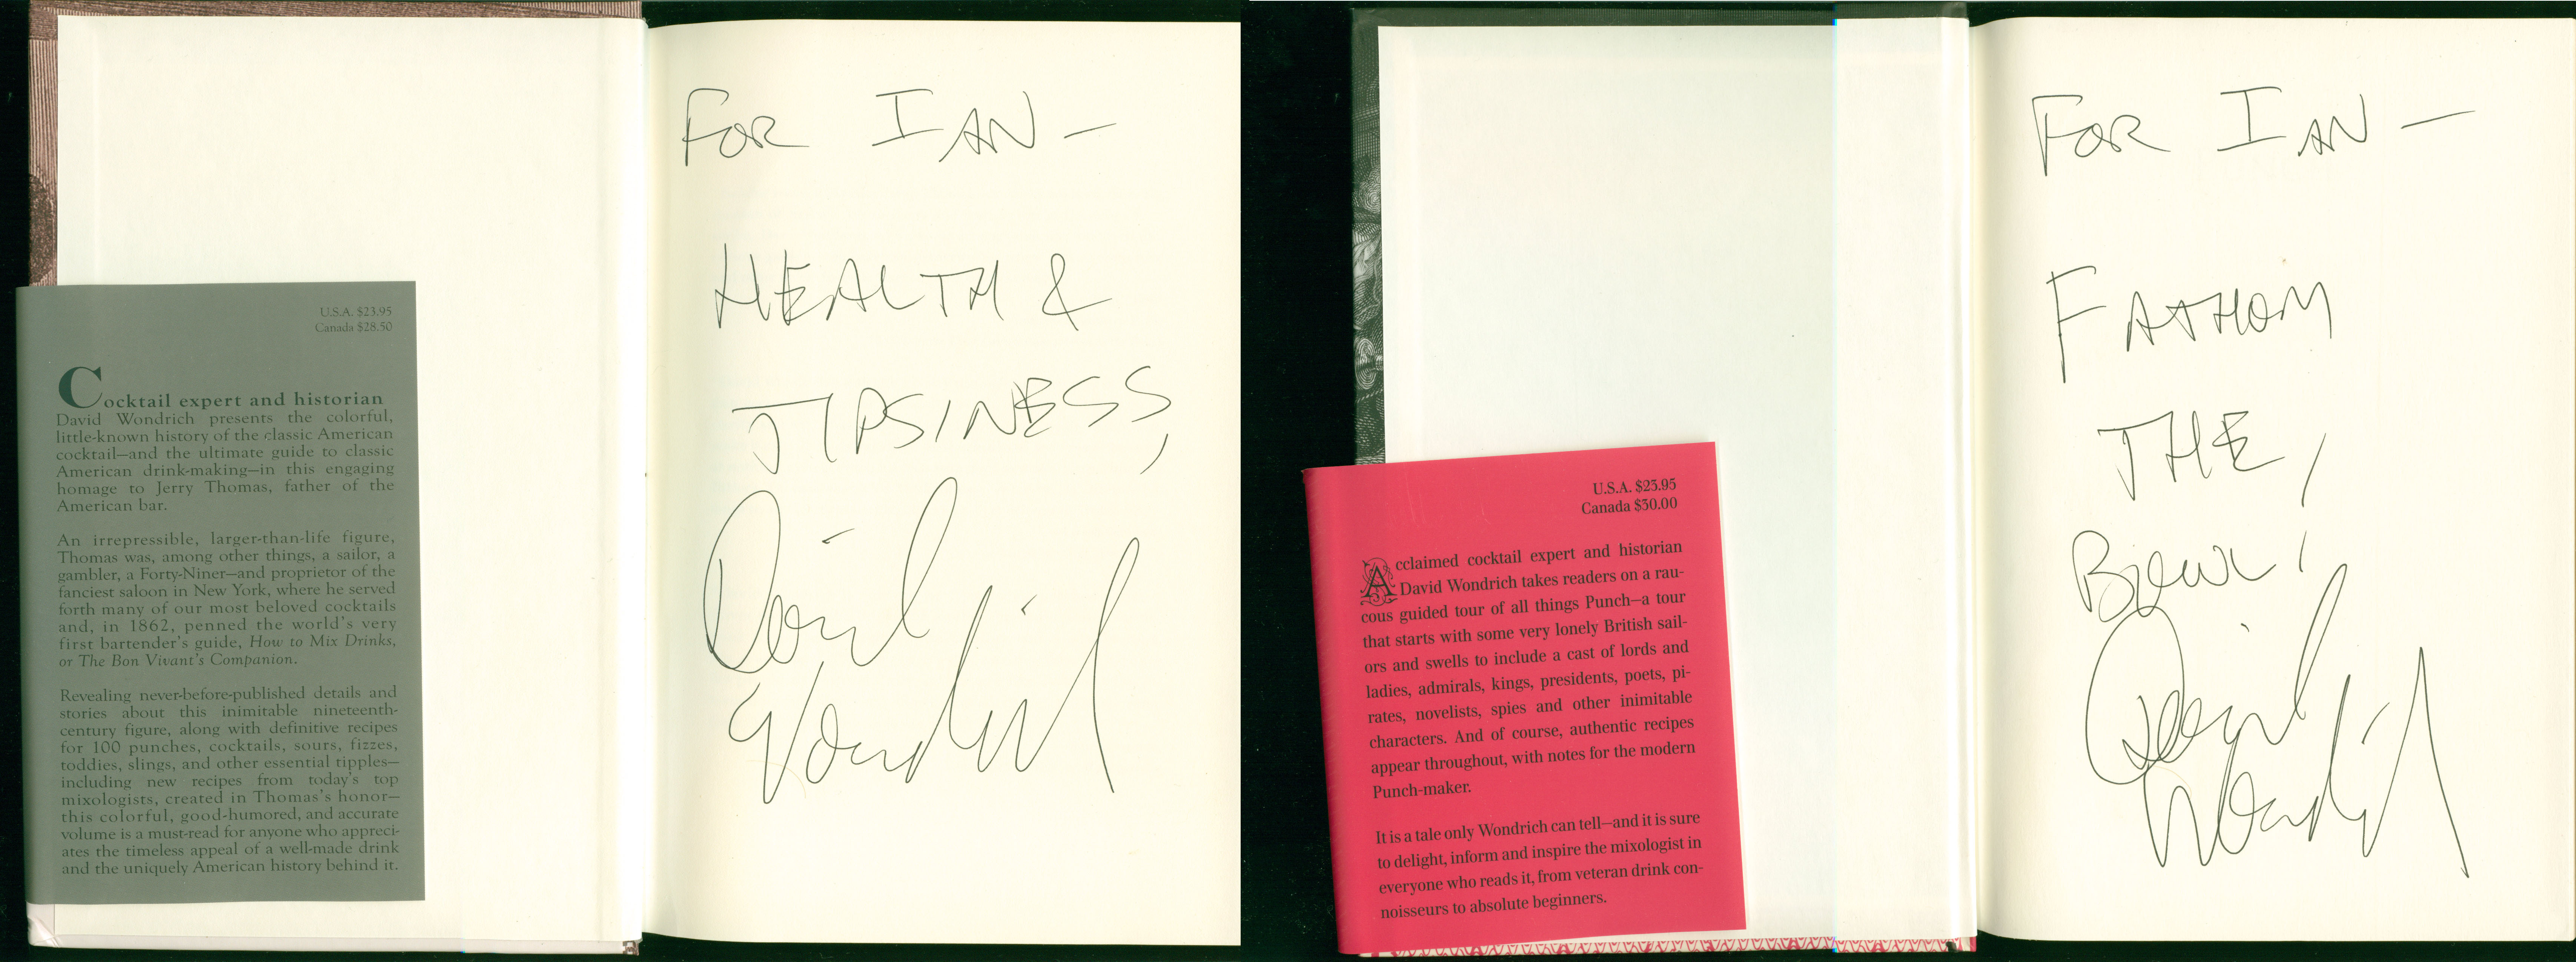 U.S.A. $23.95
Canada $28.50
Cocktail expert and historian
David Wondrich presents the colorful,
little-known history of the classic American
cocktail—and the ultimate guide to classic
American drink-making—in this engaging
homage to Jerry Thomas, father of the
American bar.
An irrepressible, larger-than-life figure,
Thomas was, among other things, a sailor, a
gambler, a Forty-Niner—and proprietor of the
fanciest saloon in New York, where he served
forth many of our most beloved cocktails
and, in 1862, penned the world's very
first bartender's guide, How to Mix Drinks,
or The Bon Vivant's Companion.
Revealing never-before-published details and
stories about this inimitable nineteenth-
century figure, along with definitive recipes
for 100 punches, cocktails, sours, fizzes,
toddies, slings, and other essential tipples—
including new recipes from today's top
mixologists, created in Thomas's honor—
this colorful, good-humored, and accurate
volume is a must-read for anyone who appreci-
ates the timeless appeal of a well-made drink
and the uniquely American history behind it.
FOR IAN—
HEALTH &
TIPSINESS,
David
Wondrich
U.S.A. $23.95
Canada $30.00
Acclaimed cocktail expert and historian
David Wondrich takes readers on a rau-
cous guided tour of all things Punch—a tour
that starts with some very lonely British sail-
ors and swells to include a cast of lords and
ladies, admirals, kings, presidents, poets, pi-
rates, novelists, spies and other inimitable
characters. And of course, authentic recipes
appear throughout, with notes for the modern
Punch-maker.
It is a tale only Wondrich can tell—and it is sure
to delight, inform and inspire the mixologist in
everyone who reads it, from veteran drink con-
noisseurs to absolute beginners.
FOR IAN—
FATHOM
THE
BOWL!
David
Wondrich